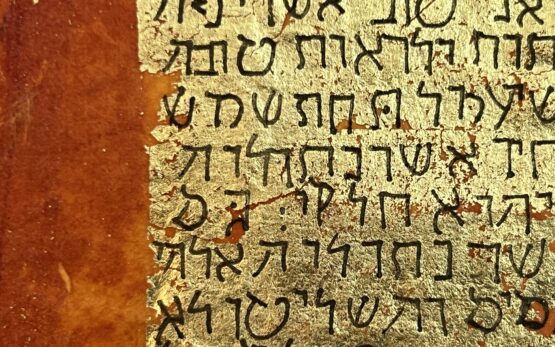 אני טוב אשר יפה לא
תות ולראות טובה
שיעמל תחת שמש
חיו אשר נתן לו ה
הוא חלקו: גם כ
שר נתן לו האלהי
סים והשליטו לא